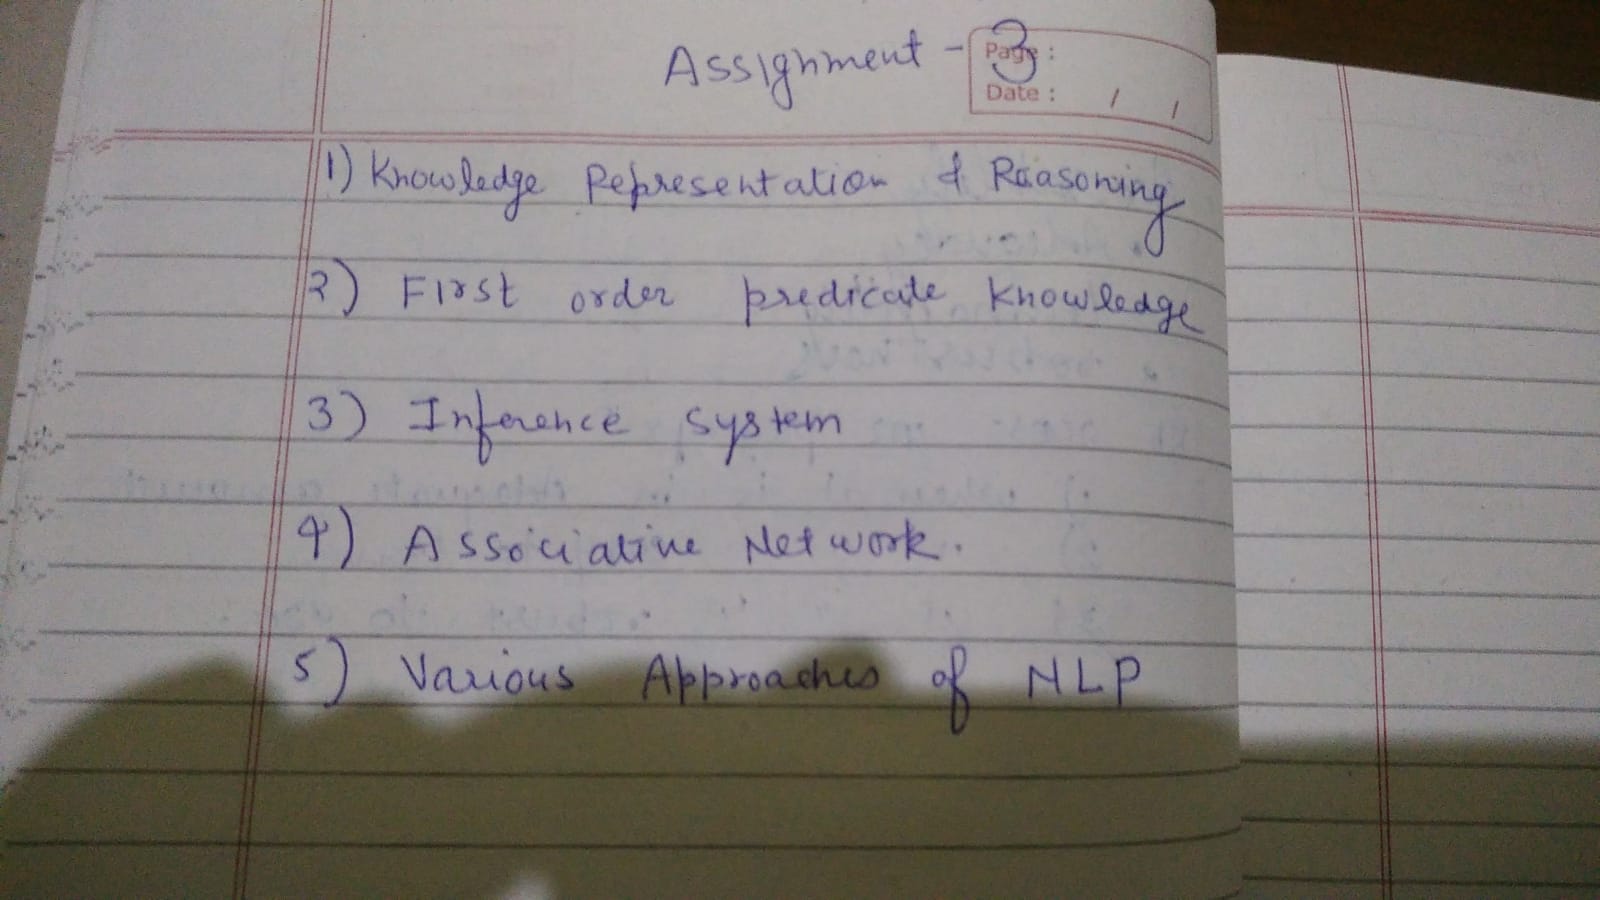 Assignment - 3
Page :
Date : / /
1) Knowledge Representation & Reasoning
2) First order predicate knowledge
3) Inference system
4) Associative Network.
5) Various Approaches of NLP